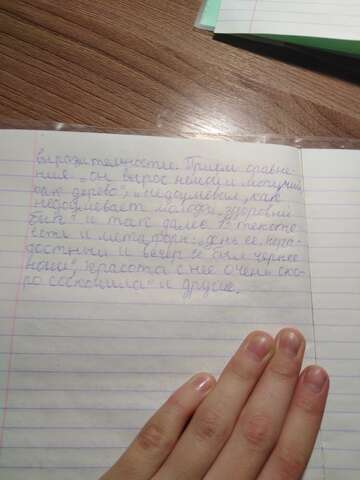 выразительностью. Приём сравне-
ния „он вырос немой и могучий,
как дерево", „недоумевал, как
недоумевает молодой, здоровый
бык" и так далее. В тексте
есть и метафоры: „день её нера-
достный и вечер её был чернее
ночи", „красота с неё очень ско-
ро соскочила" и другие.